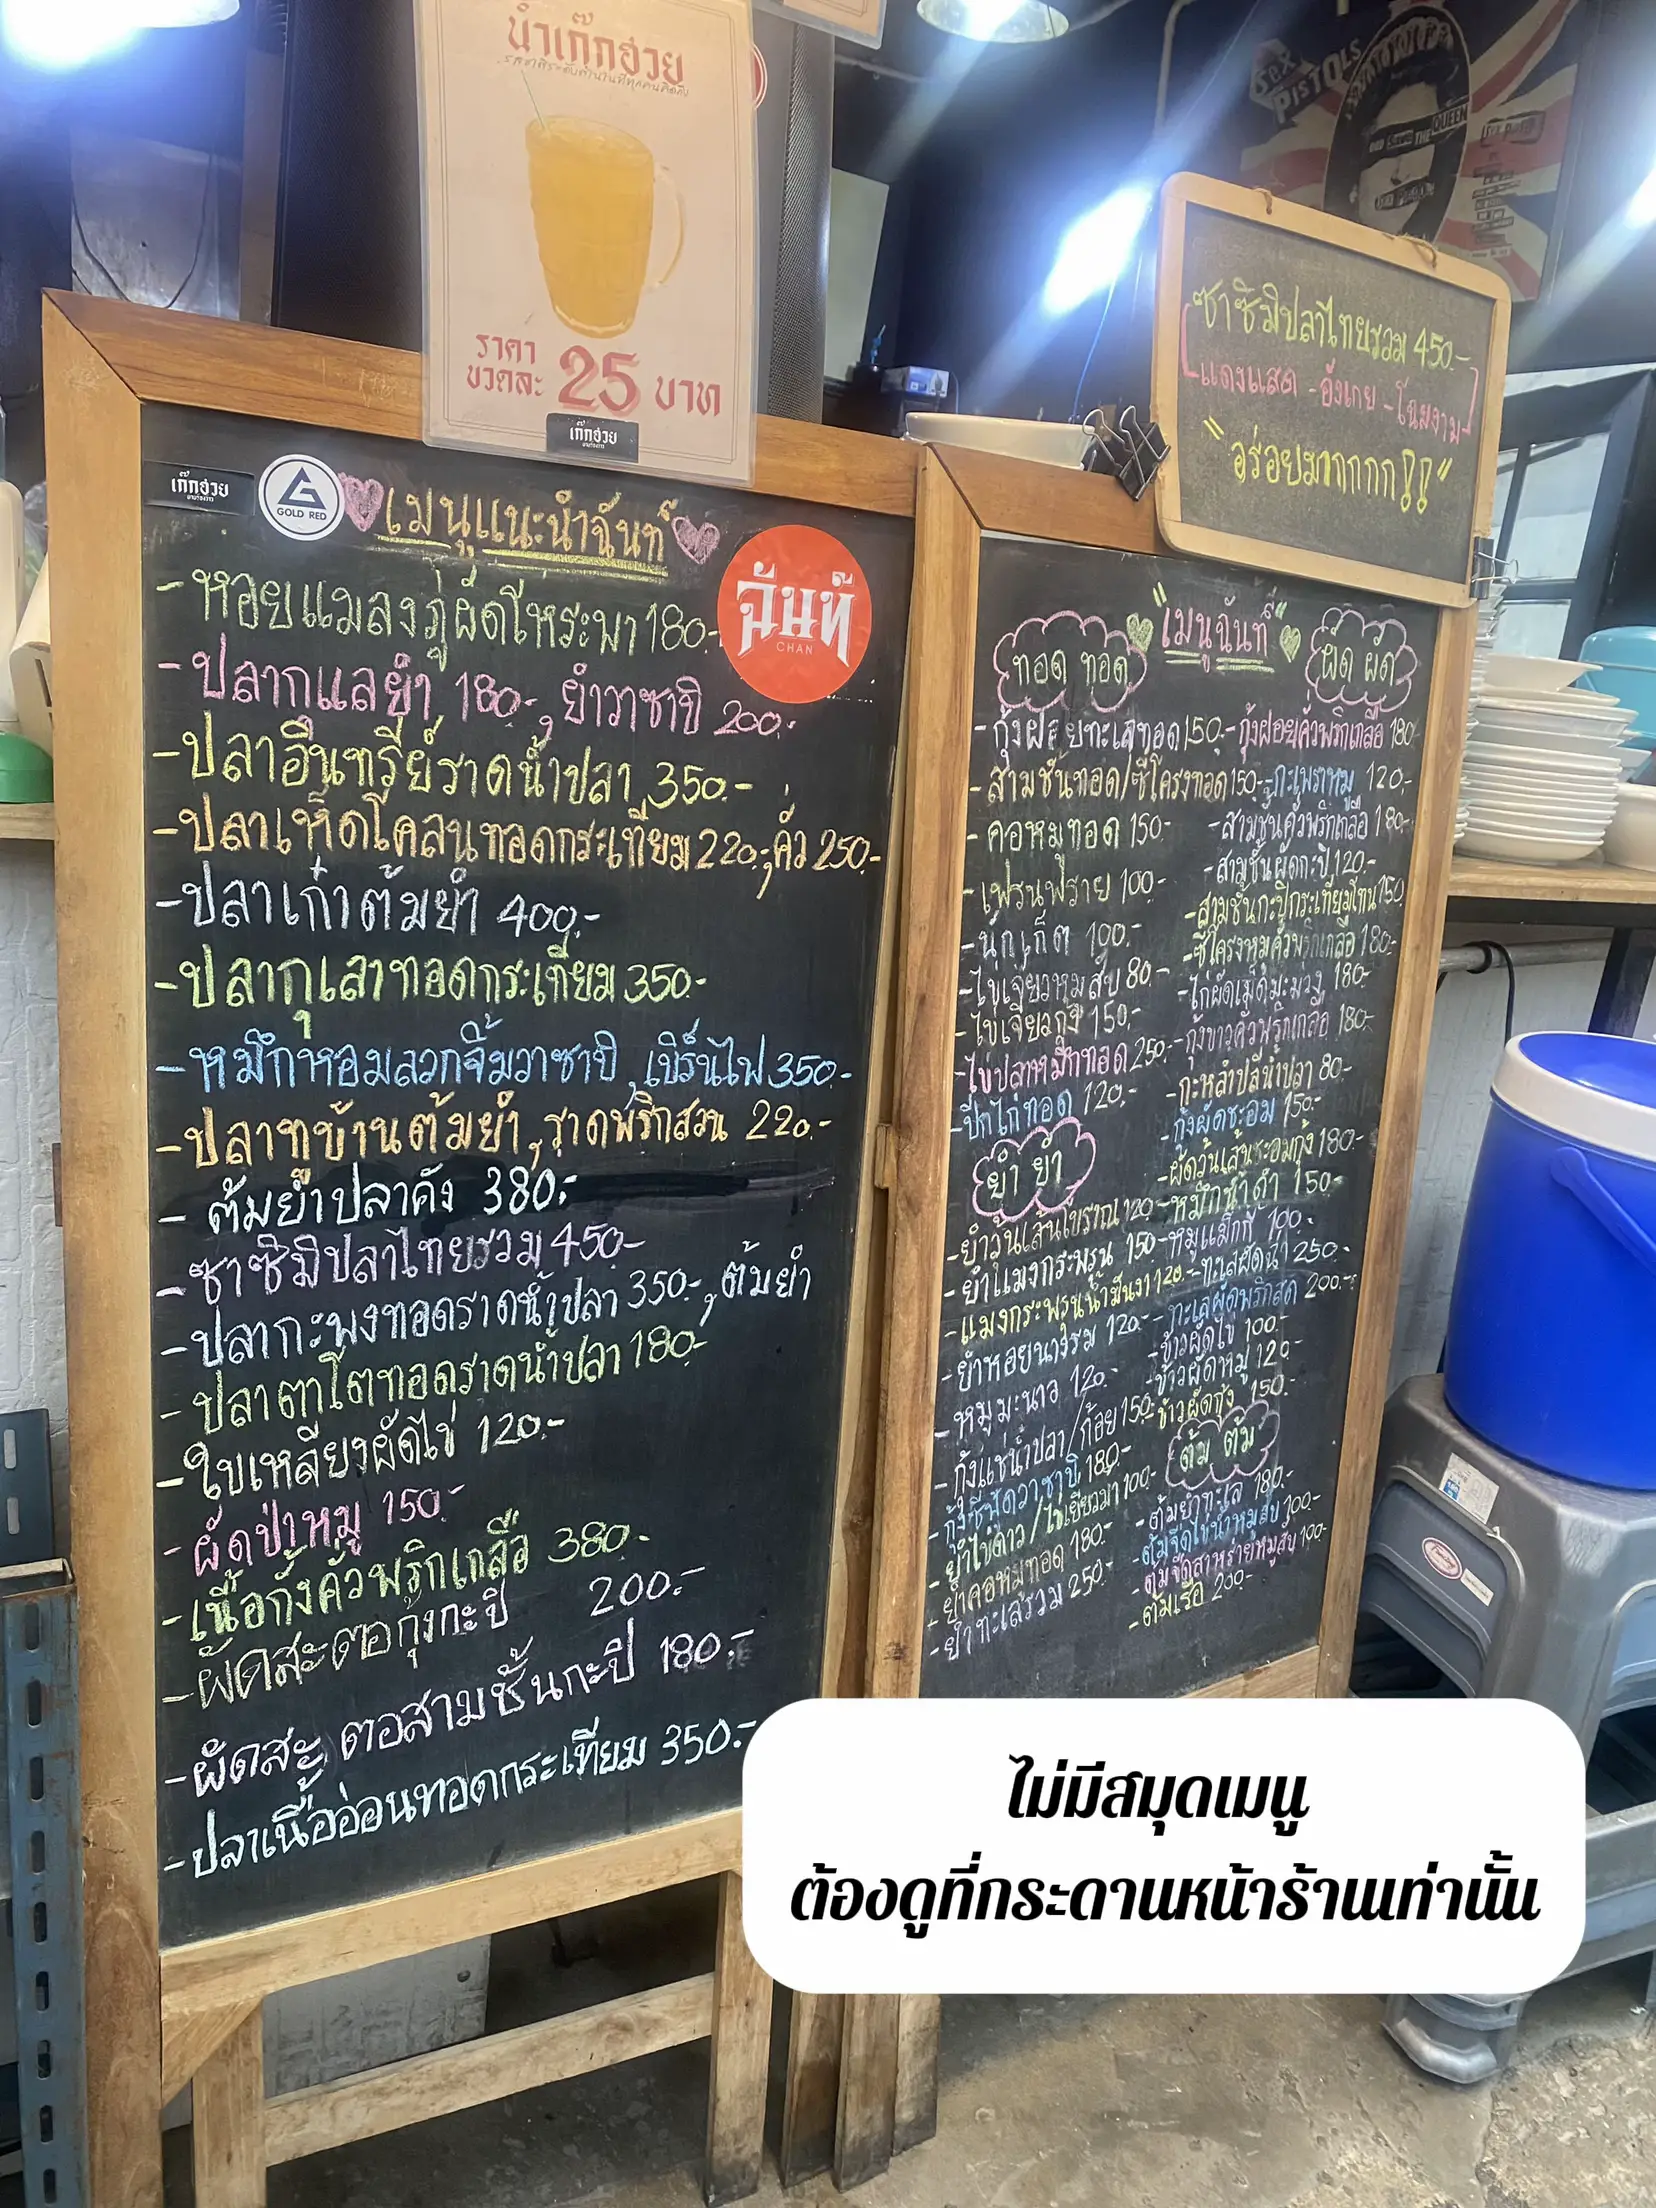 น้ำเก๊กฮวย
ราคา
ขวดละ 25 บาท
เก๊กฮวย
SEX
PISTOLS
GOD SAVE THE QUEEN
ซาซิมิปลาไทยรวม 450.-
แดงแสด - อังเกย - โฉมงาม
"อร่อยมากกกก!!"
เก๊กฮวย
GOLD RED
เมนูแนะนำฉันท์
ฉันท์
CHAN
- หอยแมลงภู่ผัดโหระพา 180.-
- ปลากแลยำ 180.-, ยำวาซาบิ 200.-
- ปลาอินทรีย์ราดน้ำปลา 350.-
- ปลาเห็ดโคลนทอดกระเทียม 220.-, คั่ว 250.-
- ปลาเก๋าต้มยำ 400.-
- ปลากุเลาทอดกระเทียม 350.-
- หมึกหอมลวกจิ้มวาซาบิ, เบิร์นไฟ 350.-
- ปลาทูบ้านต้มยำ, ราดพริกสวน 220.-
- ต้มยำปลาคัง 380.-
- ซาซิมิปลาไทยรวม 450.-
- ปลากะพงทอดราดน้ำปลา 350.-, ต้มยำ
- ปลาตาโตทอดราดน้ำปลา 180.-
- ใบเหลียงผัดไข่ 120.-
- ผัดป่าหมู 150.-
- เนื้อกั้งคั่วพริกเกลือ 380.-
- ผัดสะตอกุ้งกะปิ 200.-
- ผัดสะตอสามชั้นกะปิ 180.-
- ปลาเนื้ออ่อนทอดกระเทียม 350.-
"เมนูฉันท์"
ทอด ทอด
- กุ้งฝอยทะเลทอด 150.-
- สามชั้นทอด/ซี่โครงทอด 150.-
- คอหมูทอด 150.-
- เฟรนฟราย 100.-
- นักเก็ต 100.-
- ไข่เจียวหมูสับ 80.-
- ไข่เจียวกุ้ง 150.-
- ไข่ปลาหมึกทอด 250.-
- ปีกไก่ทอด 120.-
ยำ ยำ
- ยำวุ้นเส้นโบราณ 120.-
- ยำแมงกระพรุน 150.-
- แมงกระพรุนน้ำมันงา 120.-
- ยำหอยนางรม 120.-
- หมูมะนาว 120.-
- กุ้งแช่น้ำปลา/ก้อย 150.-
- กุ้งซีฟู้ดวาซาบิ 180.-
- ยำไข่ดาว/ไข่เยี่ยวม้า 100.-
- ยำคอหมูทอด 180.-
- ยำทะเลรวม 250.-
ผัด ผัด
- กุ้งฝอยคั่วพริกเกลือ 180.-
- กะเพราหมู 120.-
- สามชั้นคั่วพริกเกลือ 180.-
- สามชั้นผัดกะปิ 120.-
- สามชั้นกะปิกระเทียมโทน 150
- ซี่โครงหมูคั่วพริกเกลือ 180.-
- ไก่ผัดเม็ดมะม่วง 180.-
- กุ้งขาวคั่วพริกเกลือ 180.-
- กะหล่ำปลีน้ำปลา 80.-
- กุ้งผัดชะอม 150.-
- ผัดวุ้นเส้นชะอมกุ้ง 180.-
- หมึกน้ำดำ 150.-
- หมูแม็กกี้ 100.-
- ทะเลผัดฉ่ำ 250.-
- ทะเลผัดพริกสด 200.-
- ข้าวผัดไข่ 100.-
- ข้าวผัดหมู 120.-
- ข้าวผัดกุ้ง 150.-
ต้ม ต้ม
- ต้มยำทะเล 180.-
- ต้มจืดไข่น้ำหมูสับ 100.-
- ต้มจืดสาหร่ายหมูสับ 100.-
- ต้มเรือ 200.-
ไม่มีสมุดเมนู
ต้องดูที่กระดานหน้าร้านเท่านั้น